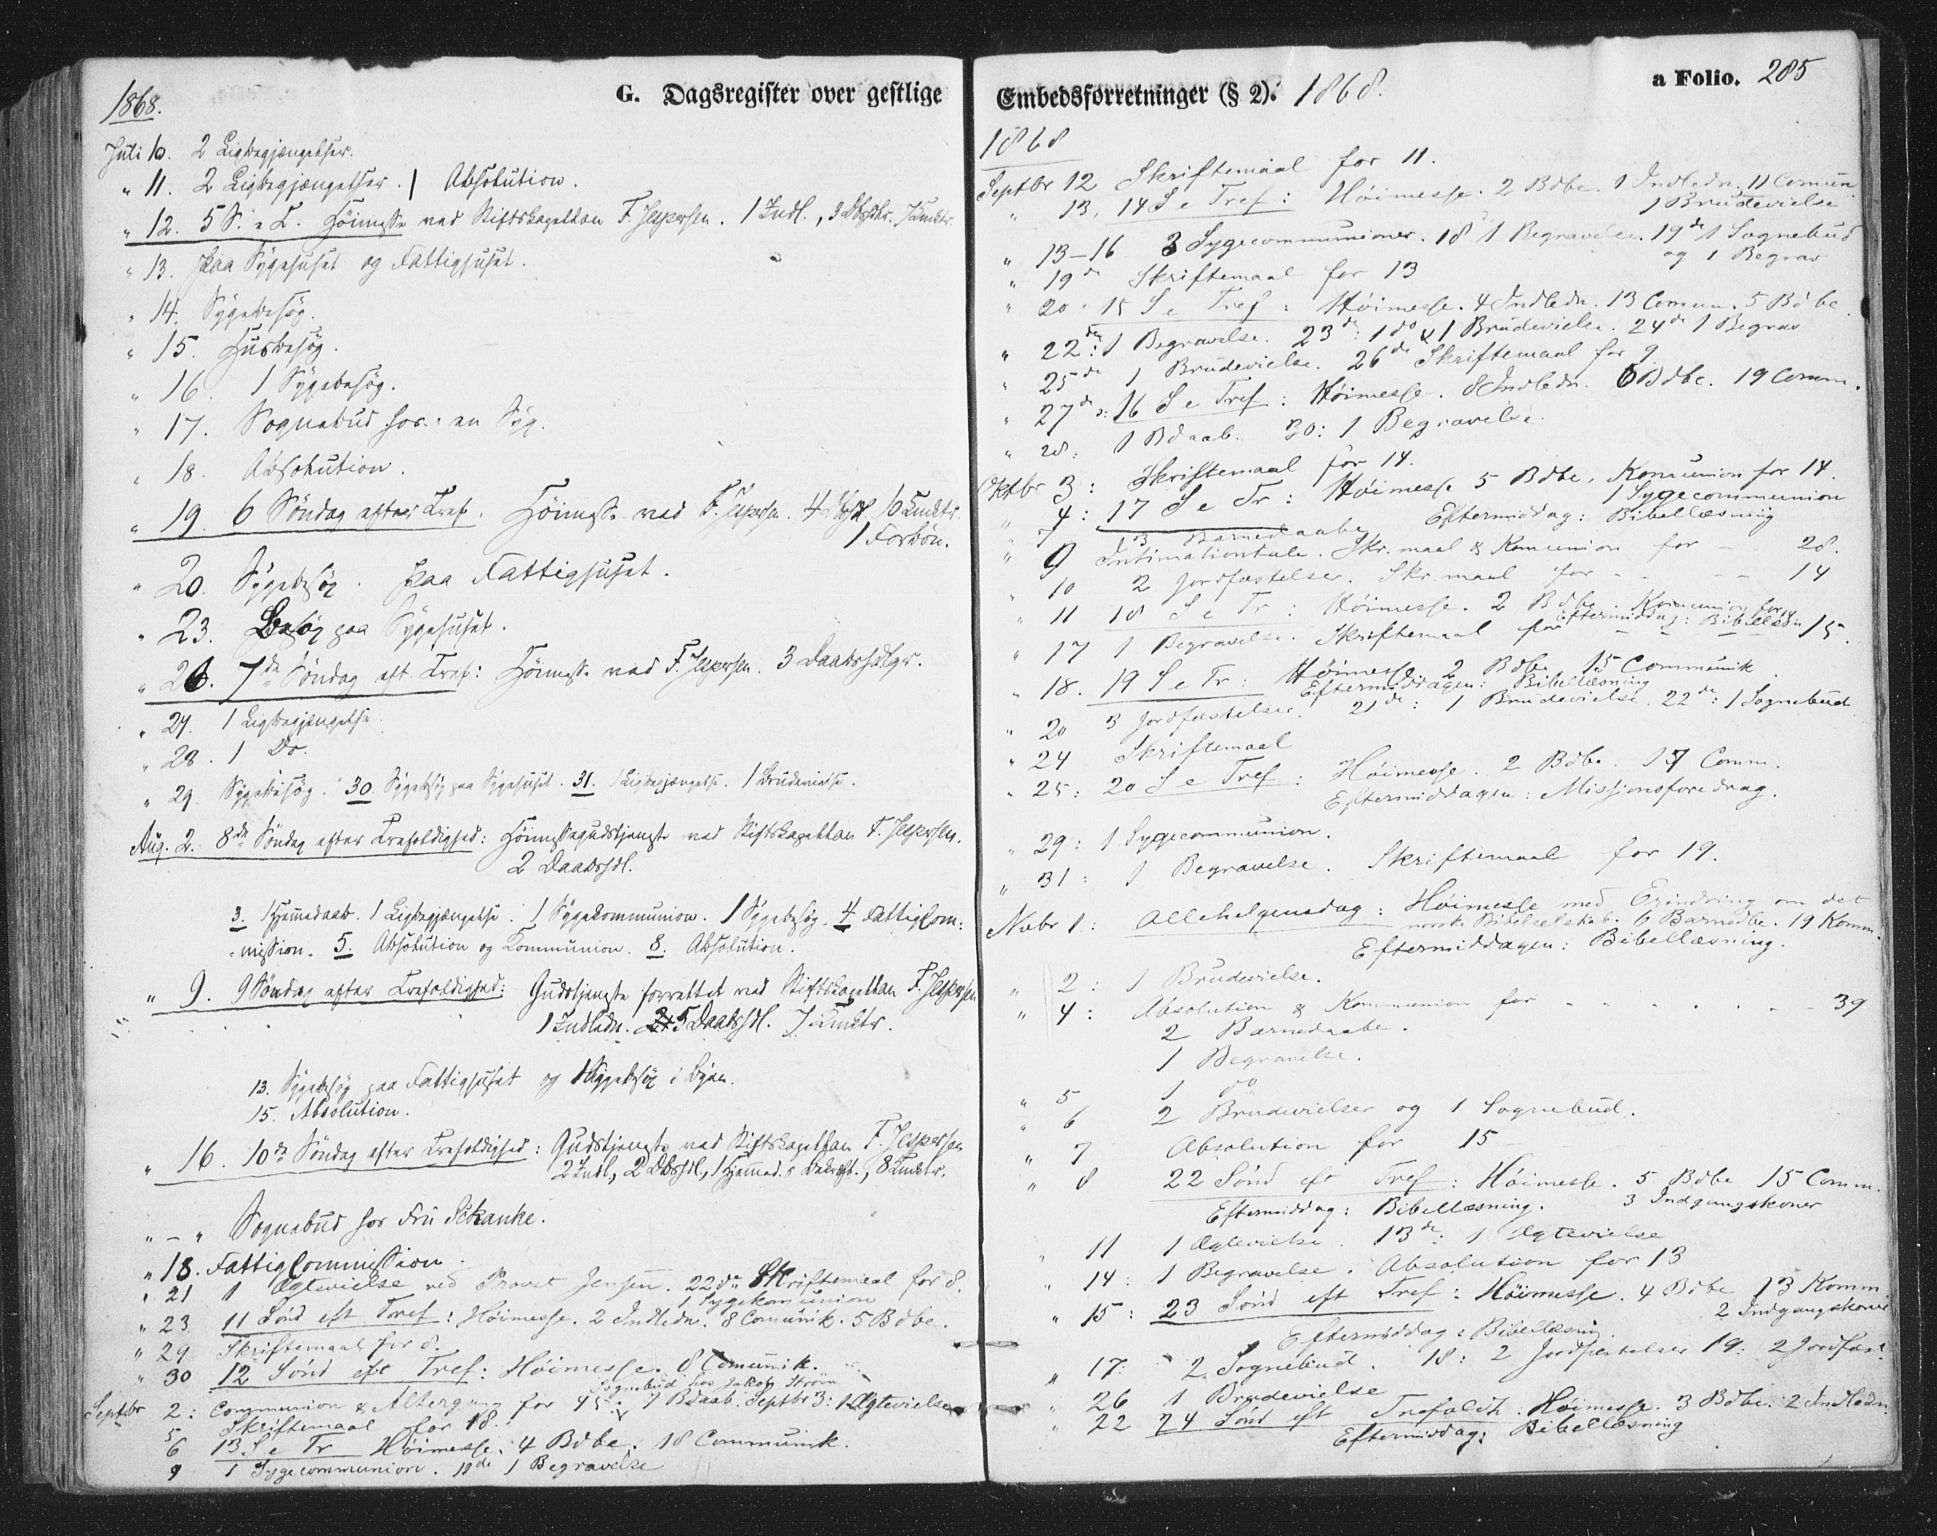 1868.
G. Dagsregister over gestlige
Juli 10. 2 Ligbegjængelser.
" 11. 2 Ligbegjængelser. 1 Absolution.
" 12. 5 S. e. T. Höimesse ved Stiftskapellan F. Jespersen. 1 Indl., 3
" 13. Paa Sygehuset og Fattighuset.
" 14. Sygebesög.
" 15. Husbesög.
" 16. 1 Sygebesög.
" 17. Sognebud hos en Syg.
" 18. Absolution.
" 19. 6 Söndag efter Tref. Höimesse ved F. Jespersen. 4
1 Forbön.
" 20. Sygebesög. paa Fattighuset.
" 23. Besög paa Sygehuset.
" 26. 7de Söndag eft. Tref: Höimesse ved F. Jespersen. 3 Daabshdlgr.
" 27. 1 Ligbegjængelse.
" 28. 1 Do.
" 29. Sygebesög. 30. Sygebesög paa Sygehuset. 31. 1 Ligbegjængelse. 1 Brudevielse.
Aug. 2. 8de Söndag efter Trefoldighed: Höimessegudstjeneste ved Stiftskapellan F. Jespersen.
2 Daabshdl.
3. 1 Hjemmedaab. 1 Ligbegjængelse. 1 Sygekommunion. 1 Sygebesög. 4 Fattigcom-
mission. 5. Absolution og Kommunion. 8. Absolution.
" 9. 9 Söndag efter Trefoldighed: Gudstjeneste forrettet ved Stiftskapellan F. Jespersen
1 Indledn. 5 Daabshdl. 7
13. Sygebesög paa Fattighuset og Sygebesög i Byen.
15. Absolution.
" 16. 10de Söndag efter Trefoldighed: Gudstjeneste ved Stiftskapellan F. Jespersen
2 Indl, 2 Dbshdl, 1
" - " Sognebud hos Fru Schanke.
" 18. Fattigcommission.
" 21 1 Ægtevielse ved Provst Jensen. 22de Skriftemaal for 8.
1 Sygekomunion
" 23 11 Sönd eft Tref: Höimesse. 2 Indledn. 8 Comunik. 5 Bdbe.
" 29 Skriftemaal for 8.
" 30 12 Sönd eft Tref: Höimesse. 8 Comunik.
Sognebud hos Jakob Ström
Septbr 2: Communion & Altergang for 45. 1 Bdaab. Septbr 3: 1 Ægtevielse
5 Skriftemaal for 18.
6 13 S e Tr Höimesse. 4 Bdbe. 18 Communik.
9 1 Sygecommunion. 10de 1 Begravelse
Embedsforretninger (§ 2). 1868.
a Folio. 285
1868
Septbr 12 Skriftemaal for 11.
" 13, 14 S e Tref: Höimesse. 2 Bdbe. 1 Indledn. 11 Comun.
1 Brudevielse
" 13-16 3 Sygecommunioner. 18 1 Begravelse. 19de 1 Sognebud
og 1 Begrav
" 19de Skriftemaal for 13
" 20. 15 S e Tref: Höimesse. 4 Indledn. 13 Comun. 5 Bdbe.
" 22de: 1 Begravelse. 23de: 1 do & 1 Brudevielse. 24de 1 Begrav
" 25de 1 Brudevielse. 26de Skriftemaal for 9
" 27de: 16 S e Tref: Höimesse. 8 Indledn. 6 Bdbe. 19 Comm.
" 28: 1 Bdaab. 30: 1 Begravelse.
Oktbr 3: Skriftemaal for 14.
" 4: 17 S e Tr: Höimesse 5 Bdbe, Komunion for 14.
1 Sygecommunion
Eftermiddag: Bibellæsning
" 7 Barnedaabe
" 9 Intimationtale. Skr.maal & Komunion for - 28.
" 10 2 Jordfæstelser. Skr.maal for - - - 14
" 11 18 S e Tr: Höimesse. 2 Bdbe. Komunion for 14
Eftermiddag: Bibellæsn
" 17 1 Begravelse. Skriftemaal for - - - 15.
" 18. 19 S e Tr: Höimesse 2 Bdbe 15 Communik
Eftermiddagen: Bibellæsning
" 20 3 Jordfæstelser. 21de: 1 Brudevielse. 22de: 1 Sognebud
" 24 Skriftemaal
" 25: 20 S e Tref: Höimesse. 2 Bdbe. 17 Comm.
Eftermiddagen: Missjonsforedrag.
" 29: 1 Sygecommunion.
" 31: 1 Begravelse. Skriftemaal for 19.
Novbr 1: Allehelgensdag: Höimesse med Erindring om det
norske Bibelselskab. 6 Barnedbe. 19 Komm.
Eftermiddagen: Bibellæsning.
" 2: 1 Brudevielse.
" 4: Absolution & Kommunion for - - - 39
2 Barnedaabe.
1 Begravelse.
" 5 1 do
" 6 2 Brudevielser og 1 Sognebud.
" 7 Absolution for 15
" 8 22 Sönd eft Tref: Höimesse. 5 Bdbe 15 Comm.
Eftermiddag: Bibellæsning. 3 Indgangskoner
" 11 1 Ægtevielse. 13de: 1 Ægtevielse
" 14: 1 Begravelse. Absolution for 13
" 15: 23 Sönd eft Tref: Höimesse. 4 Bdbe 13 Komm
2 Indgangskoner
Eftermiddag: Bibellæsning.
" 17: 2 Sognebud. 18: 2 Jordfæstelser 19: 2 Jordfæst.
" 26 1 Brudevielse
" 22 24 Sönd eft Trefoldh: Höimesse. 3 Bdbe. 2 Indledn
Eftermiddag: Bibellæsning